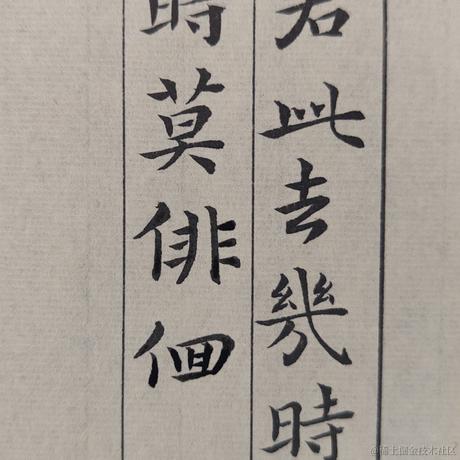 君此去幾時
時莫俳佪
@稀土掘金技术社区